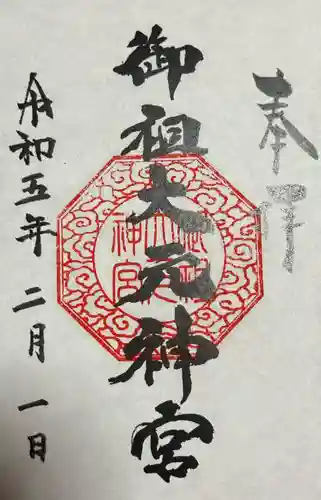 奉拝
御祖大元神宮
令和五年二月一日